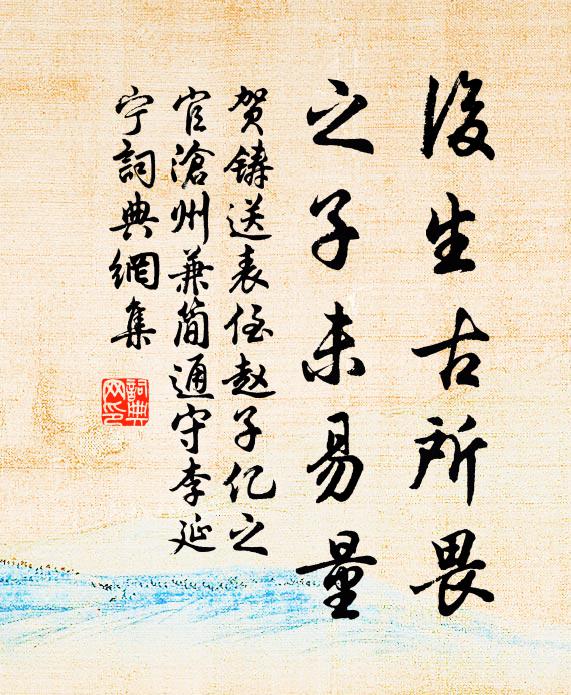 後生古所畏
之子未易量
贺鑄送表侄赵子亿之
官滄州兼简通守李延
宁詞典網集
詞典
网印